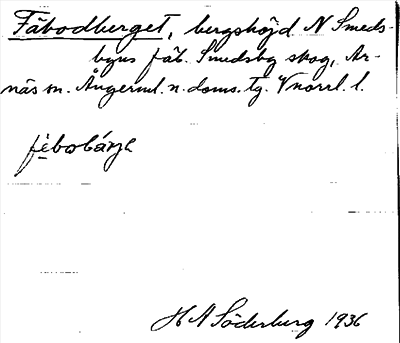 Fäbodberget, bergshöjd N Smeds-
byns fäb. Smedsby skog, Ar-
näs sn. Ångerml. n. doms. tg. Vnorrl. l.
fèbobárje
H A Söderberg 1936